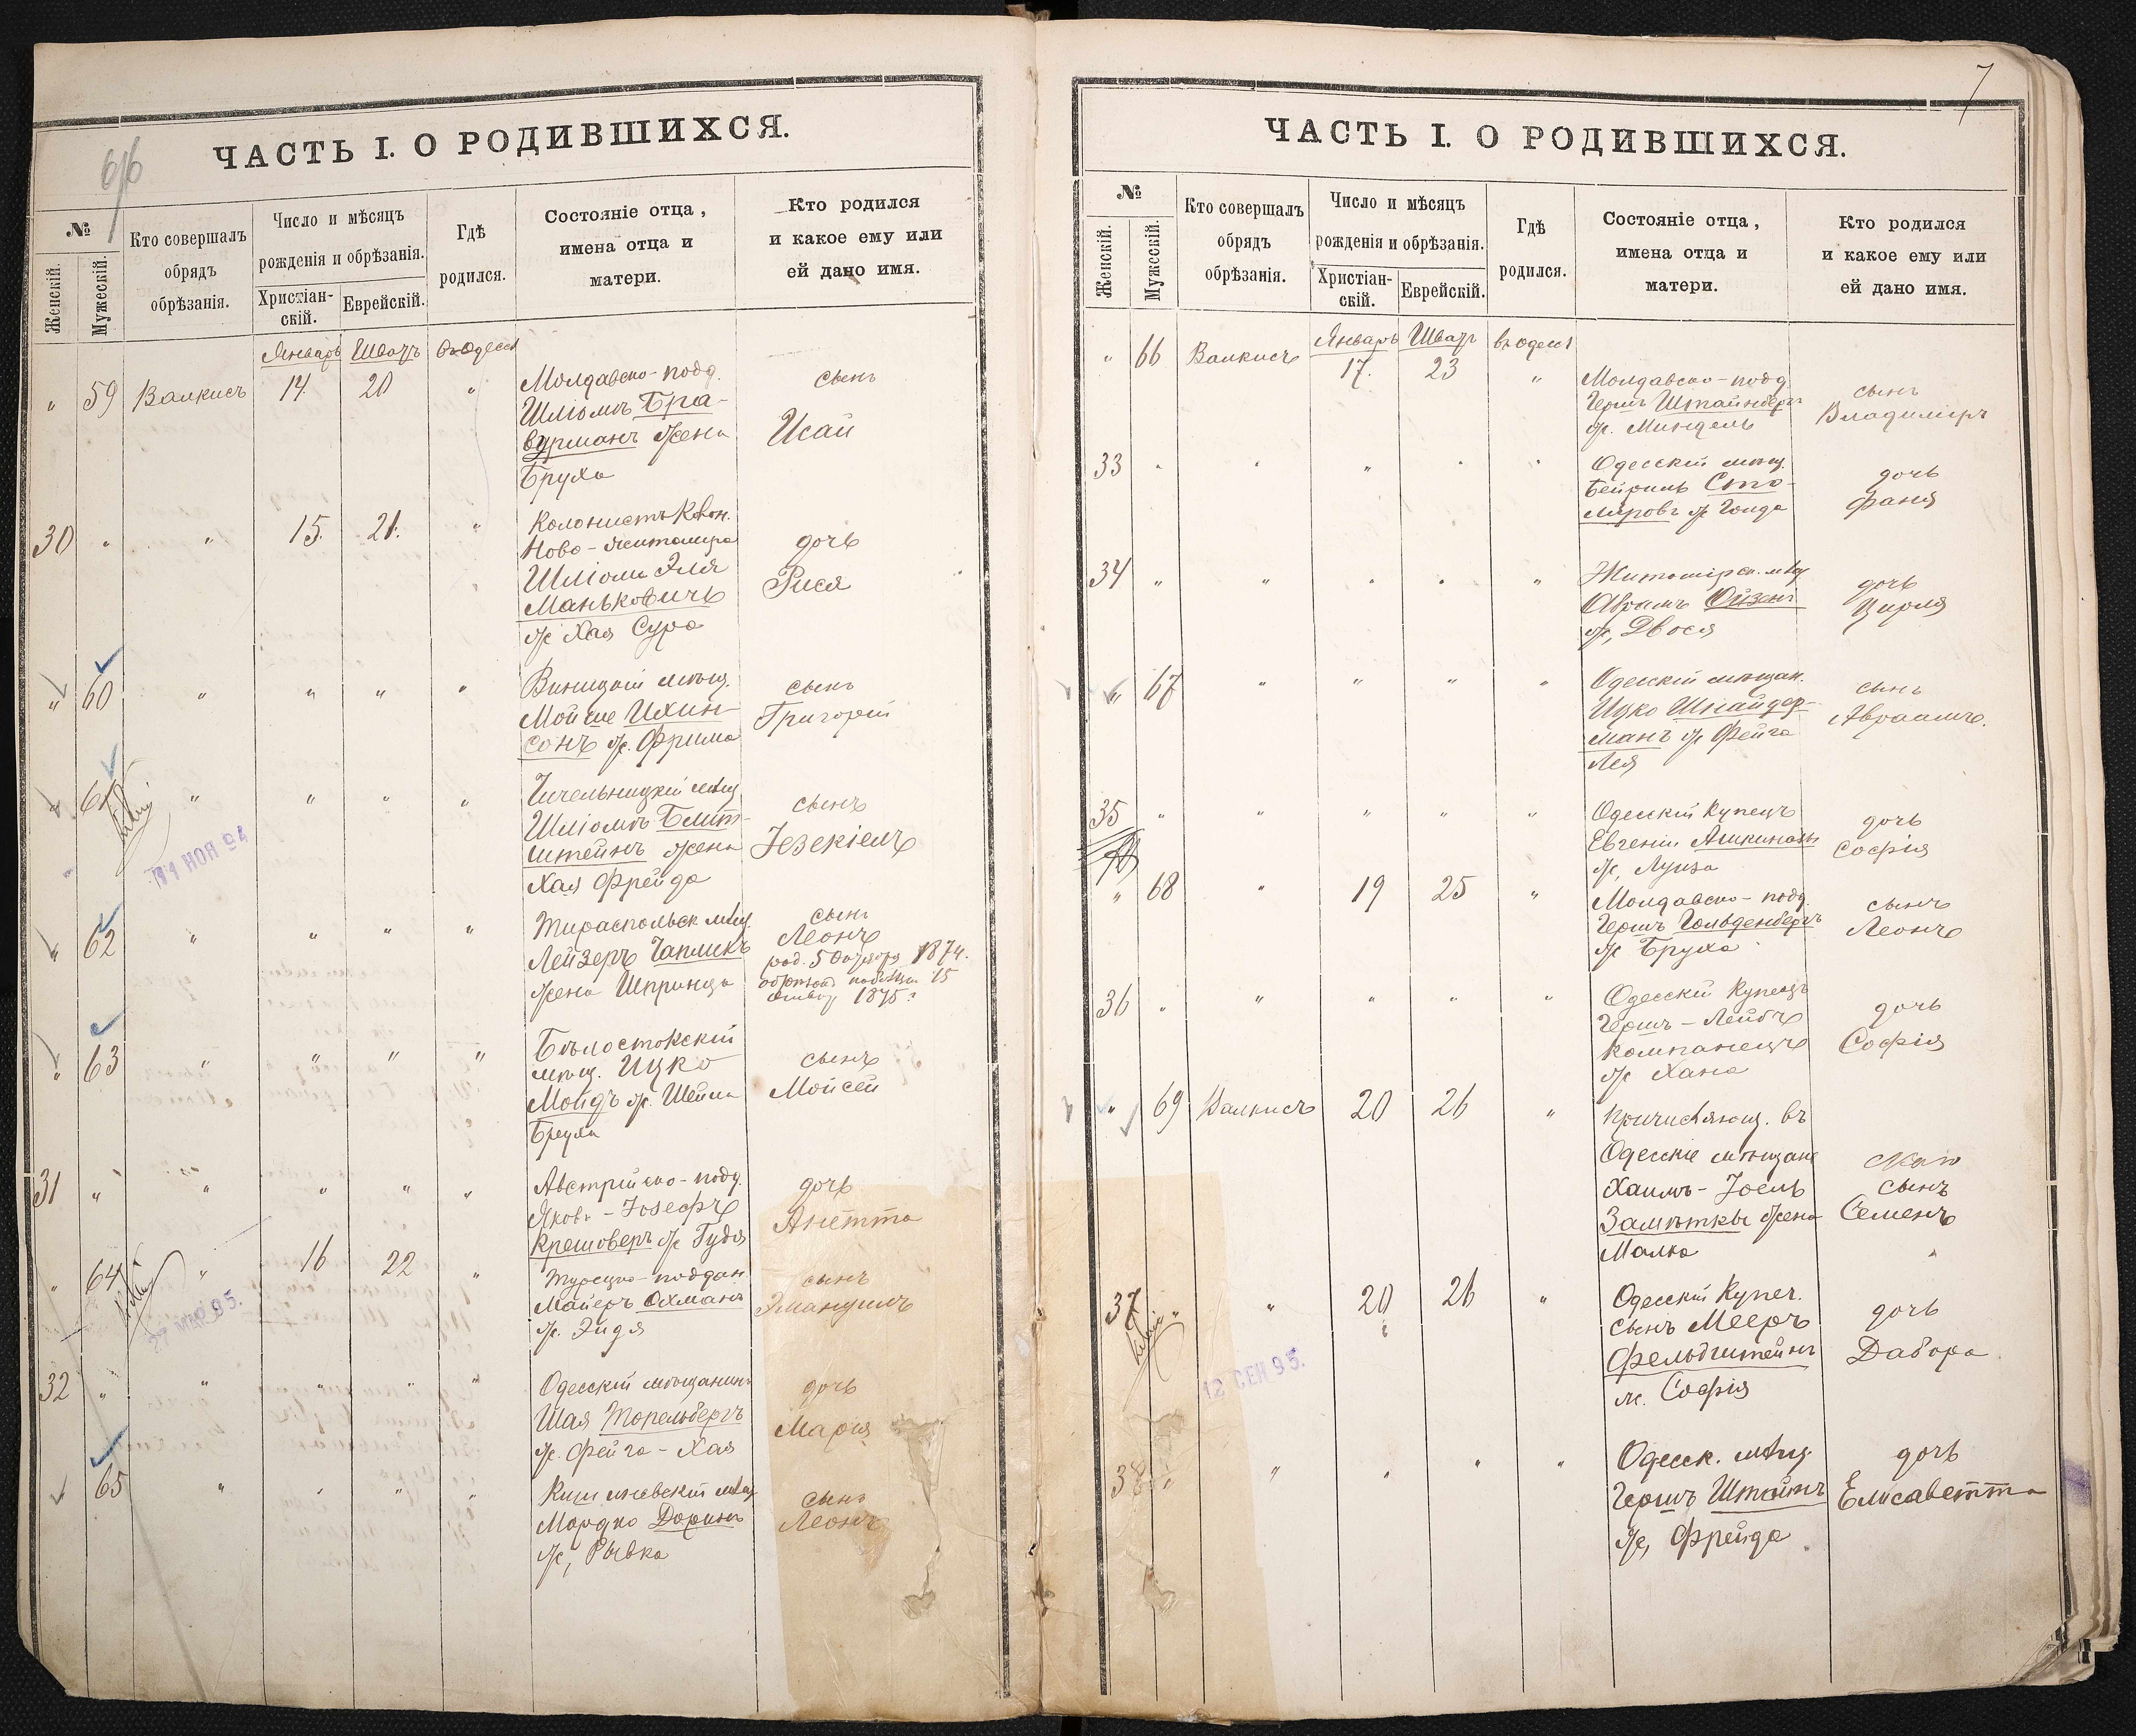 6/6
ЧАСТЬ I. О РОДИВШИХСЯ.
№
Женскій.
Мужескій.
Кто совершалъ
обрядъ
обрѣзанія.
Число и мѣсяцъ
рожденія и обрѣзанія.
Христіан-
скій.
Еврейскій.
Гдѣ
родился.
Состояніе отца,
имена отца и
матери.
Кто родился
и какое ему или
ей дано имя.
Январь Шватъ въ Одессѣ
" 59 Валкисъ 14. 20 "
Молдавско-подд.
Шліомъ Бра-
вурманъ жена
Бруха
сынъ
Исай
30 " " 15. 21. "
Колонистъ Колон.
Ново-Житомира
Шліома Эля
Маньковичъ
ж Хая Сура
дочь
Рися
" 60 " " " "
Виницкій мѣщ.
Мойше Ихин-
сонъ ж. Фрима
сынъ
Григорій
" 61 " " " "
Чичельницкій мѣщ
Шліомъ Блит-
штейнъ жена
Хая Фрейда
сынъ
Іезекіель
11 НОЯ 94
" 62 " " " "
Тираспольск мѣщ.
Лейзеръ Чапликъ
жена Шпринца
сынъ
Леонъ
род. 5 Октября 1874.
15
1875 г
" 63 " " " "
Бѣлостокскій
мѣщ. Ицко
Мойдъ ж. Шейна
Бруха
сынъ
Мойсей
31 " " " " "
Австрійско-подд.
Яковъ-Іозефъ
Крешоверъ ж Гудя
дочь
Анетта
" 64 " 16 22 "
Турецко-поддан.
Майеръ Охманъ
ж. Эйдя
сынъ
Эмануилъ
95.
32 " " " " "
Одесскій мѣщанинъ
Шая Топельбергъ
ж. Фейга-Хая
дочь
Марія
65 " " " "
Кишиневскій мѣщ
Мордко Доринъ
ж, Рывка
сынъ
Леонъ
7
ЧАСТЬ I. О РОДИВШИХСЯ.
№
Женскій.
Мужескій.
Кто совершалъ
обрядъ
обрѣзанія.
Число и мѣсяцъ
рожденія и обрѣзанія.
Христіан-
скій.
Еврейскій.
Гдѣ
родился.
Состояніе отца,
имена отца и
матери.
Кто родился
и какое ему или
ей дано имя.
Январь Шватъ въ Одессѣ
" 66 Валкисъ 17. 23 "
Молдавско-подд
Гершъ Штайнбергъ
ж. Миндель
сынъ
Владиміръ
33 " " " " "
Одесскій мѣщ.
Бейришъ Сто-
лировъ ж Голда
дочь
Фаня
34 " " " " "
Житомірск. мѣщ
Абрамъ Ойзенъ
ж, Двося
дочь
Цирля
" 67 " " " "
Одесскій мѣщан.
Ицко Шнайдер-
манъ ж Фейга
Лея
сынъ
Авраамъ.
35 " " " " "
Одесскій Купецъ
Евгеній Ашкинази
ж, Луиза
дочь
Софія
" 68 " 19 25 "
Молдавско-подд.
Гершъ Гольденбергъ
ж Бруха
сынъ
Леонъ
36 " " " " "
Одесскій Купецъ
Гершъ-Лейбъ
Компанеецъ
ж Хана
дочь
Софія
" 69 Валкисъ 20 26 "
Причисляющ. въ
Одесскіе мѣщане
Хаимъ-Іоель
Замѣтки жена
Малка
сынъ
Семенъ
37 " " 20 26 "
Одесскій Купеч.
сынъ Мееръ
Фельдштейнъ
ж. Софія
дочь
Дабора
12 СЕН 95.
38 " " " " "
Одесск. мѣщ.
Гершъ Штаймъ
ж, Фрейда
дочь
Елисаветта